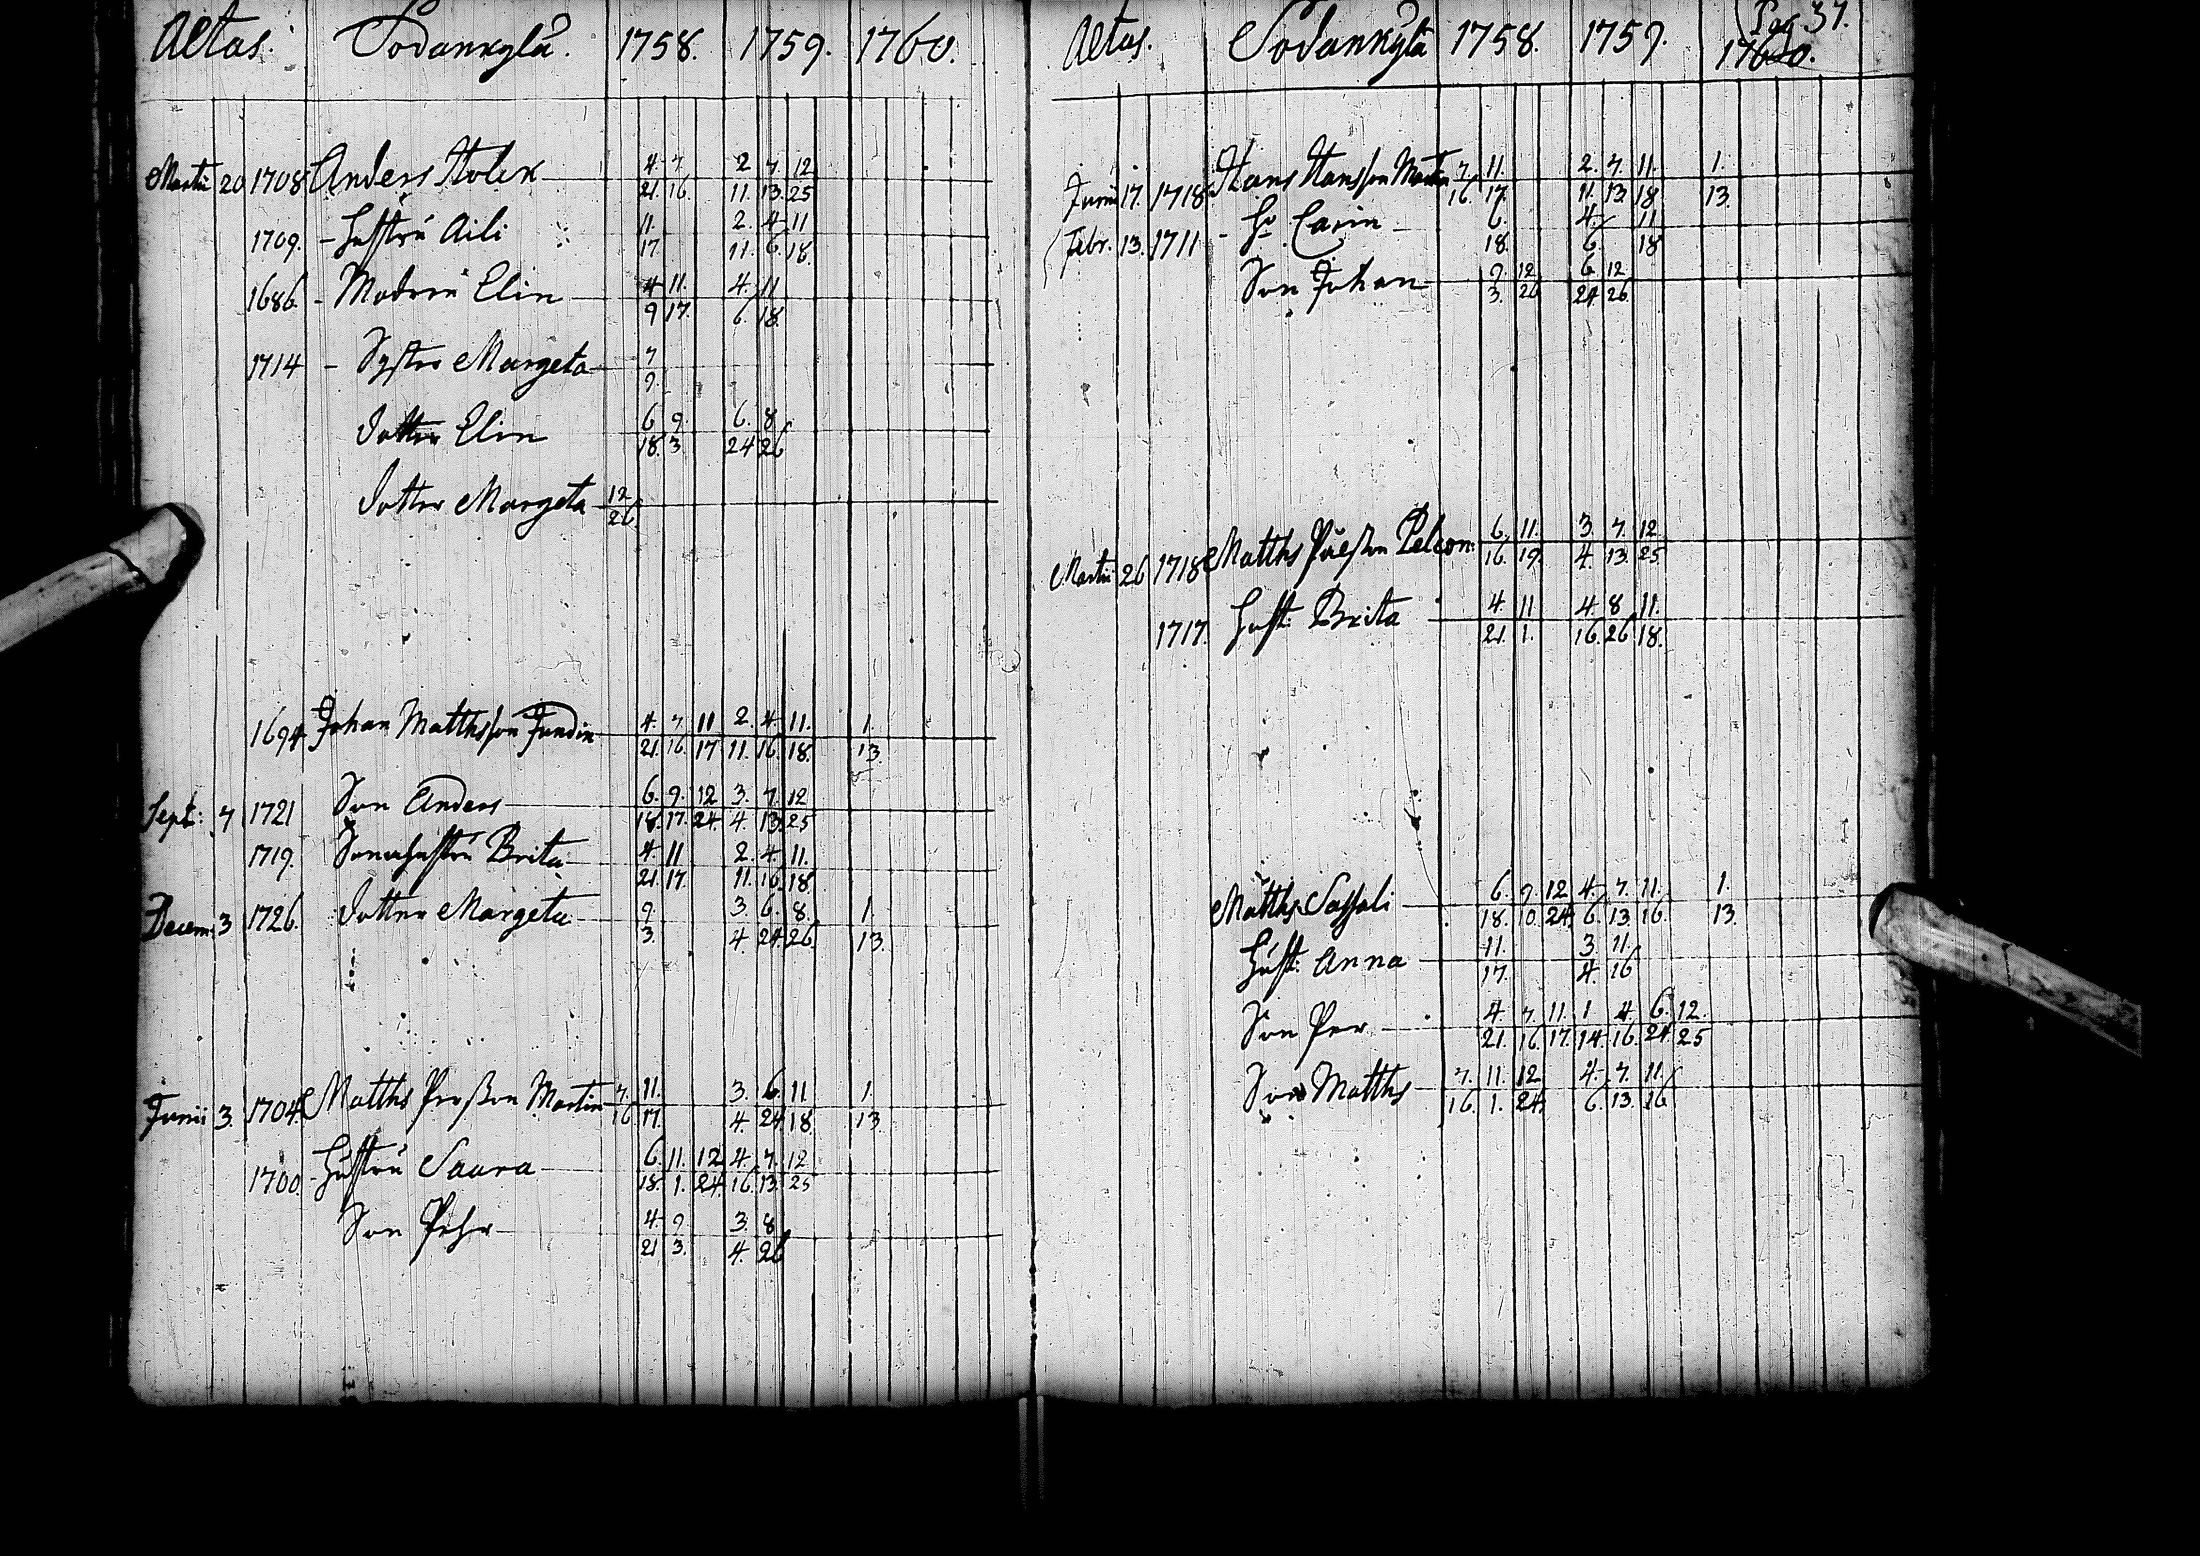 Aetas. Sodankylä. 1758. 1759. 1760.
Martii 20 1708 Anders 4 7 2 7 12
21. 16. 11. 13. 25
1709. - Hustru Aili 11 2. 4 11
17 11. 6. 18.
1686. - Modren Elin 4 11. 4. 11
9 17. 6. 18.
1714 - Systren Margeta 7
9.
dotter Elin 6 9. 6. 8
18. 3. 24 26
dotter Margeta 12
26.
1694. Johan Matthsson 4. 7. 11 2. 4. 11. 1.
21. 16. 17 11. 16. 18. 13.
Sept: 7 1721 Son Anders 6. 9. 12 3. 7. 12
18. 17. 24. 4. 13. 25
1719. Sonenshustru Brita 4. 11 2. 4. 11.
21. 17. 11. 16. 18.
Decem: 3 1726. dotter Margeta 9. 3. 6. 8. 1.
3. 4 24. 26. 13.
Junii 3. 1704. Matths Persson Martin 7. 11. 3. 6. 11 1.
16 17. 4. 24 18. 13.
1700. - Hustru Saara 6. 11. 12 4. 7. 12
18. 1. 24. 16. 13. 25
Son Pehr 4. 9 3. 8
21 3. 4 26
Pag 37.
Aetas. Sodankylä 1758. 1759. 1760.
Junii 17. 1718. Hans Hansson Martin 7. 11. 2. 7. 11. 1.
16. 17. 11. 13. 18. 13.
Febr. 13. 1711 - H. Carin 6. 4. 11
18. 6. 18
Son Johan 9. 12 6. 12
3. 26 24. 26.
Martii 26 1718 Matths 6. 11. 3. 7. 12
16. 19. 4. 13. 25
1717. Hust: Brita 4. 11 4. 8 11.
21. 1. 16. 26 18.
Matths 6. 9. 12 4. 7. 11. 1.
18. 10. 24. 6. 13. 16. 13.
Hust: Anna 11. 3 11.
17. 4. 16
Son Per 4. 7. 11. 1 4. 6. 12.
21. 16. 17. 14. 16. 24. 25
Son Matths 7. 11. 12 4. 7. 11.
16. 1. 24. 6. 13. 16